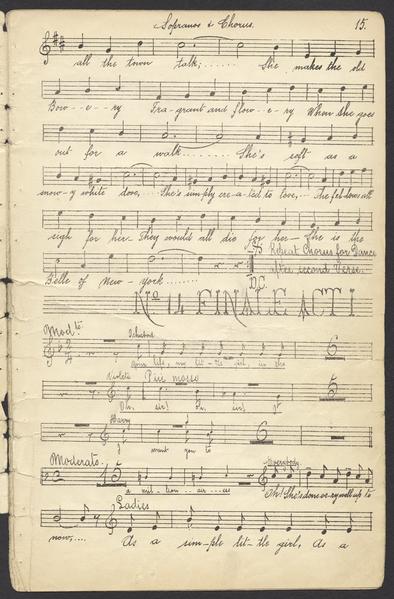 Sopranos & Chorus.
15.
all the town talk; ...... She makes the old
Bow--e--ry Fra-grant and flow--e-ry When she goes
out for a walk........ She's soft as a
snow-y white dove, ... She's sim-ply cre-a-ted to love, ... The fel-lows all
sigh for her- They would all die for her- She is the
Belle of New-york........
Repeat Chorus for Dance
after second Verse.
D.C.
No 14 FINALE ACT I
Modto
6
Violet Piu mosso
5
Oh, sir! sir!
Harry
6
I want you to
Moderato.
15
Everybody
a mil-lion--air--ess Oh! She's done ve-ry well up to
Ladies
now, .... As a sim-ple lit-tle girl, As a